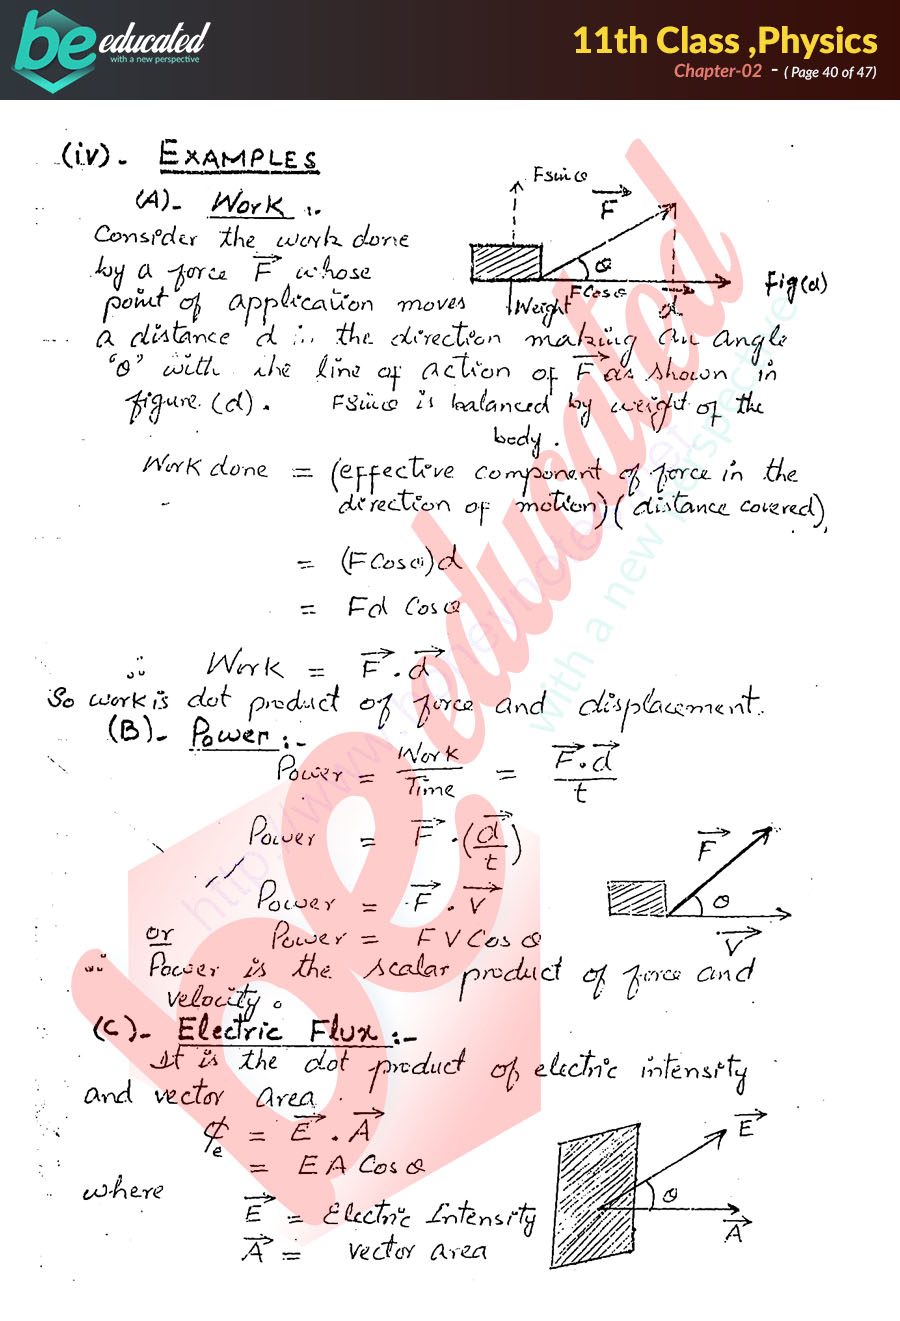 be educated
with a new perspective
11th Class ,Physics
Chapter-02 - ( Page 40 of 47)
(iv)- EXAMPLES
(A)- Work :-
Fsinθ
F
θ
Fcosθ
Weight
d
Fig(d)
Consider the work done
by a force F⃗ whose
point of application moves
a distance d in the direction making an angle
'θ' with the line of action of F⃗ as shown in
figure (d). FSinθ is balanced by weight of the
body.
Work done = (effective component of force in the
direction of motion)(distance covered)
= (FCosθ)d
= Fd Cosθ
∴ Work = F⃗ . d⃗
So work is dot product of force and displacement.
(B)- Power :-
Power = Work/Time = F⃗.d⃗/t
Power = F⃗ . (d⃗/t)
Power = F⃗ . V⃗
or Power = F V Cos θ
F⃗
θ
V⃗
∴ Power is the scalar product of force and
velocity.
(C)- Electric Flux :-
It is the dot product of electric intensity
and vector area.
ϕe = E⃗ . A⃗
= E A Cos θ
where
E⃗ = Electric Intensity
A⃗ = vector area
E⃗
θ
A⃗
be educated
with a new perspective